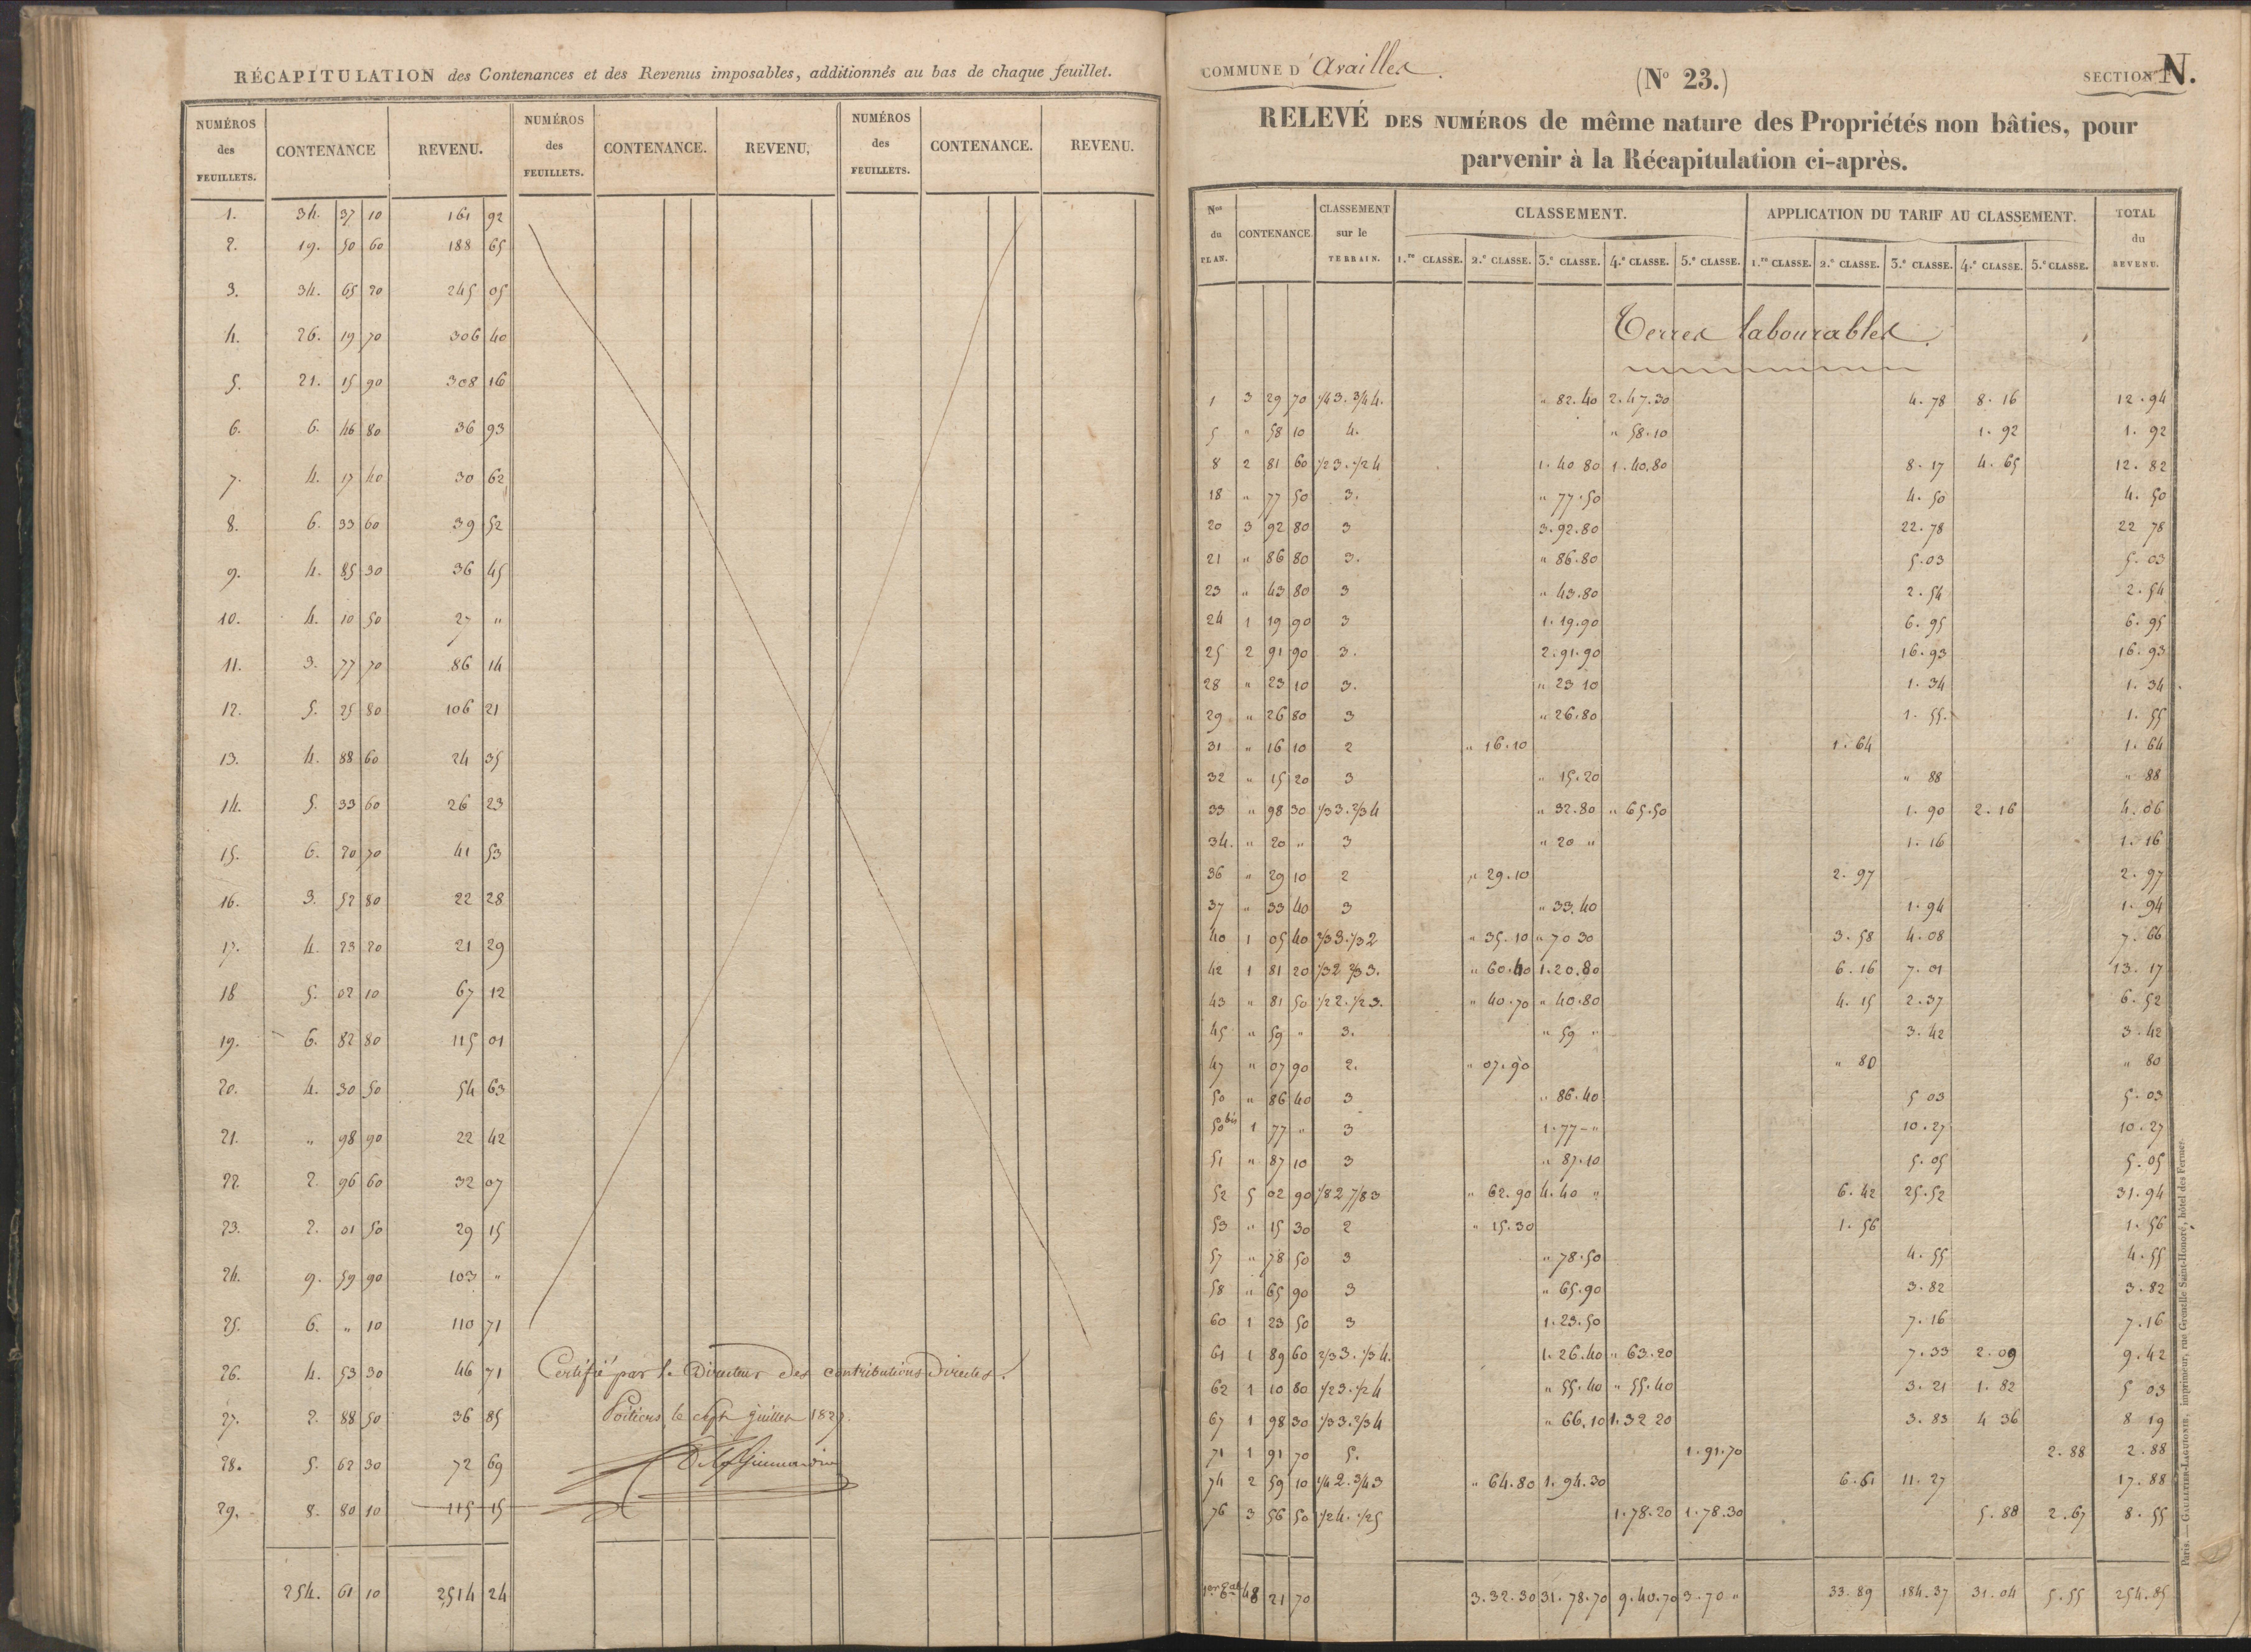 RÉCAPITULATION des Contenances et des Revenus imposables, additionnés au bas de chaque feuillet.
NUMÉROS des FEUILLETS. CONTENANCE REVENU. NUMÉROS des FEUILLETS. CONTENANCE. REVENU, NUMÉROS des FEUILLETS. CONTENANCE. REVENU.
1. 34. 37 10 161 92
2. 19. 50 60 188 65
3. 34. 65 20 245 05
4. 26. 19 70 306 40
5. 21. 15 90 308 16
6. 6. 46 80 36 93
7. 4. 17 40 30 62
8. 6. 33 60 39 52
9. 4. 85 30 36 45
10. 4. 10 50 27 "
11. 3. 77 70 86 14
12. 5. 25 80 106 21
13. 4. 88 60 24 35
14. 5. 33 60 26 23
15. 6. 20 70 41 53
16. 3. 52 80 22 28
17. 4. 23 20 21 29
18 5. 02 10 67 12
19. 6. 82 80 115 01
20. 4. 30 50 54 63
21. " 98 90 22 42
22. 2. 96 60 32 07
23. 2. 01 50 29 15
24. 9. 59 90 103 "
25. 6. " 10 110 71
26. 4. 53 30 46 71
27. 2. 88 50 36 85
28. 5. 62 30 72 69
29. 8. 80 10 115 15
254. 61 10 2514 24
Certifié par le Directeur des contributions Directes.
Poitiers, le sept juillet 1827.
COMMUNE D'Availles.
(No 23.)
SECTION N.
RELEVÉ DES NUMÉROS de même nature des Propriétés non bâties, pour
parvenir à la Récapitulation ci-après.
Nos du PLAN. CONTENANCE. CLASSEMENT sur le TERRAIN. CLASSEMENT. APPLICATION DU TARIF AU CLASSEMENT. TOTAL du REVENU.
1.re CLASSE. 2.e CLASSE. 3.e CLASSE. 4.e CLASSE. 5.e CLASSE. 1.re CLASSE. 2.e CLASSE. 3.e CLASSE. 4.e CLASSE. 5.e CLASSE.
Terres labourables.
1 3 29 70 1/4 3. 3/4 4. " 82.40 2.47.30 4.78 8.16 12.94
5 " 58 10 4. " 58.10 1.92 1.92
8 2 81 60 1/2 3. 1/2 4 1.40 80 1.40.80 8.17 4.65 12.82
18 " 77 50 3. " 77.50 4.50 4.50
20 3 92 80 3 3.92.80 22.78 22 78
21 " 86 80 3. " 86.80 5.03 5.03
23 " 43 80 3 " 43.80 2.54 2.54
24 1 19 90 3 1.19.90 6.95 6.95
25 2 91 90 3. 2.91.90 16.93 16.93
28 " 23 10 3. " 23 10 1.34 1.34
29 " 26 80 3 " 26.80 1.55. 1.55
31 " 16 10 2 " 16.10 1.64 1.64
32 " 15 20 3 " 15.20 " 88 " 88
33 " 98 30 1/3 3. 2/3 4 " 32.80 " 65.50 1.90 2.16 4.06
34. " 20 " 3 " 20 " 1.16 1.16
36 " 29 10 2 " 29.10 2.97 2.97
37 " 33 40 3 " 33.40 1.94 1.94
40 1 05 40 2/3 3. 1/3 2 " 35.10 " 70 30 3.58 4.08 7.66
42 1 81 20 1/3 2 2/3 3. " 60.40 1.20.80 6.16 7.01 13.17
43 " 81 50 1/2 2. 1/2 3. " 40.70 " 40.80 4.15 2.37 6.52
45 " 59 " 3. " 59 " 3.42 3.42
47 " 07 90 2. " 07.90 " 80 " 80
50 " 86 40 3 " 86.40 5 03 5.03
50 bis 1 77 " 3 1.77 - " 10.27 10.27
51 " 87 10 3 " 87.10 5.05 5.05
52 5 02 90 1/8 2 7/8 3 " 62.90 4.40 " 6.42 25.52 31.94
53 " 15 30 2 " 15.30 1.56 1.56
57 " 78 50 3 " 78.50 4.55 4.55
58 " 65 90 3 " 65.90 3.82 3.82
60 1 23 50 3 1.23.50 7.16 7.16
61 1 89 60 2/3 3. 1/3 4. 1.26.40 " 63.20 7.33 2.09 9.42
62 1 10 80 1/2 3. 1/2 4 " 55.40 " 55.40 3.21 1.82 5 03
67 1 98 30 1/3 3. 2/3 4 " 66.10 1.32 20 3.83 4 36 8 19
71 1 91 70 5. 1.91.70 2.88 2.88
74 2 59 10 1/4 2. 3/4 3 " 64.80 1.94.30 6.61 11.27 17.88
76 3 56 50 1/2 4. 1/2 5 1.78.20 1.78.30 5.88 2.67 8.55
48 21 70 3.32.30 31.78.70 9.40.70 3.70 " 33.89 184.37 31.04 5.55 254.85
Paris. — GAULTIER-LAGUIONIE, imprimeur, rue Grenelle Saint-Honoré, hôtel des Fermes.